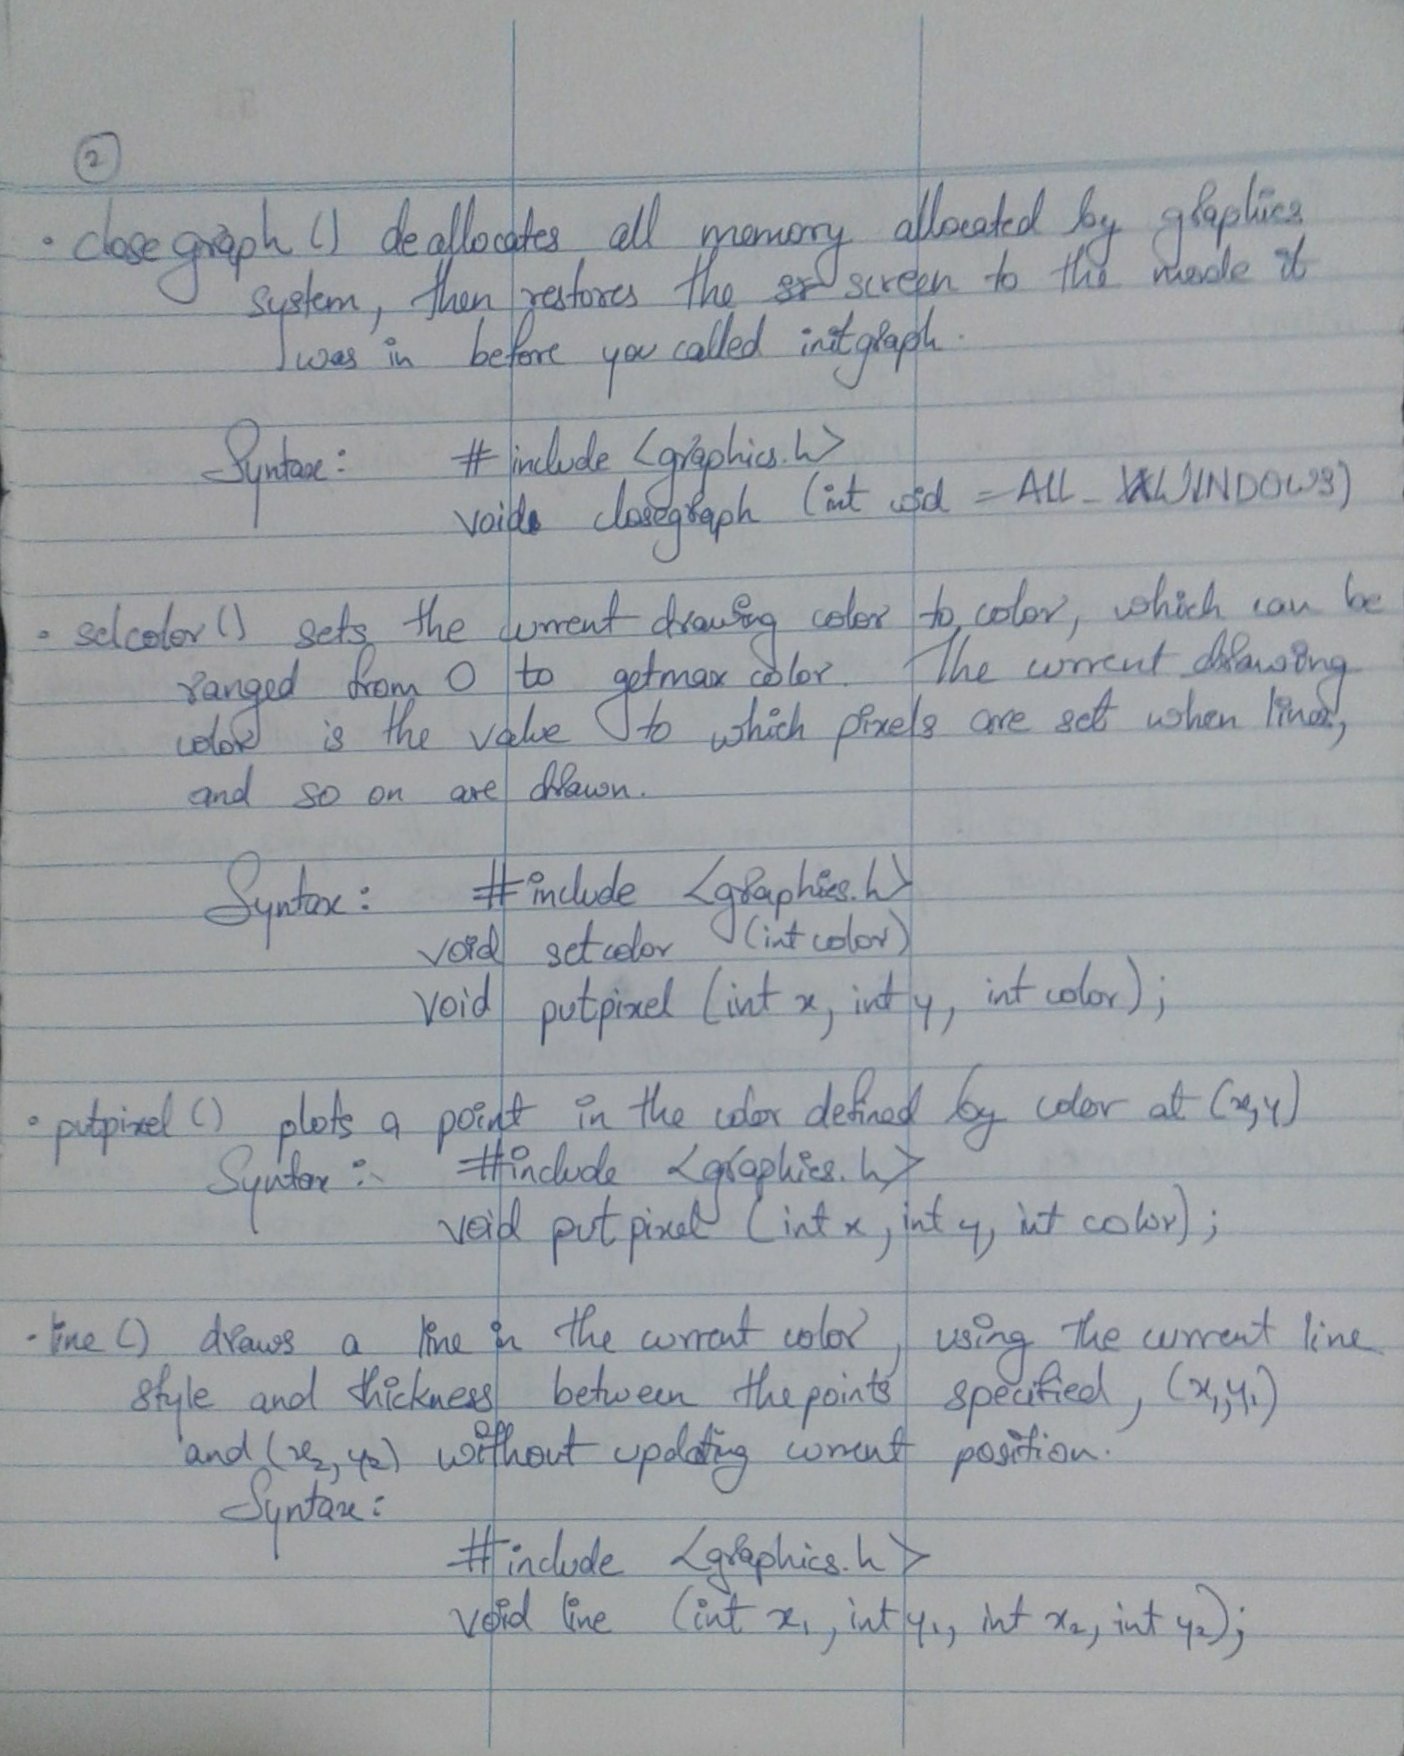 2
• closegraph () deallocates all memory allocated by graphics
system, then restores the screen to the mode it
was in before you called initgraph.
Syntax: # include <graphics.h>
void closegraph (int wid = ALL_WINDOWS)
• setcolor () sets the current drawing color to color, which can be
ranged from 0 to getmaxcolor. The current drawing
color is the value to which pixels are set when lines,
and so on are drawn.
Syntax: #include <graphics.h>
void setcolor (int color)
void putpixel (int x, int y, int color);
• putpixel () plots a point in the color defined by color at (x,y)
Syntax :- #include <graphics.h>
void putpixel (int x, int y, int color);
• line () draws a line in the current color, using the current line
style and thickness between the points specified, (x₁,y₁)
and (x₂, y₂) without updating current position.
Syntax:
#include <graphics.h>
void line (int x₁, int y₁, int x₂, int y₂);